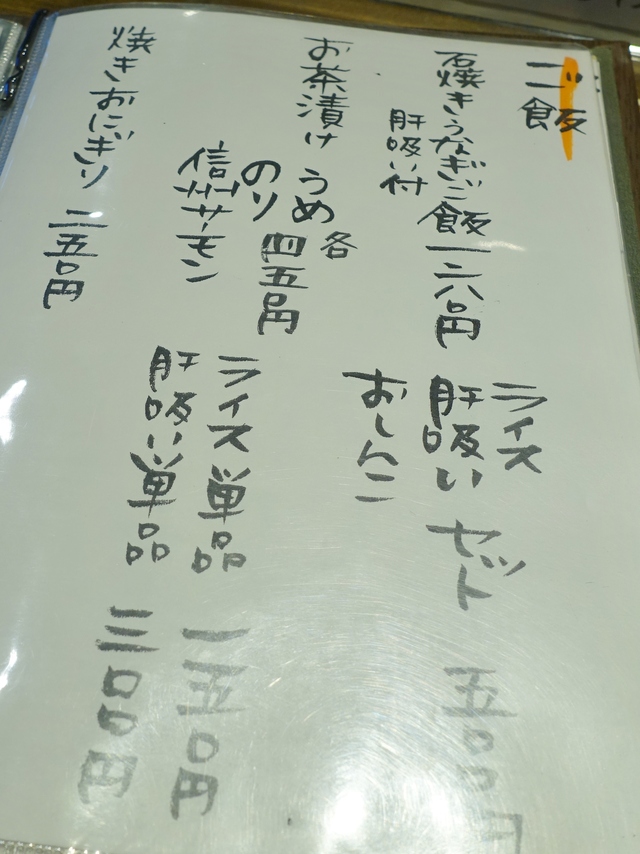 ご飯
石焼きうなぎご飯 一二八〇円
肝吸い付
お茶漬け うめ
のり
信州サーモン
各
四五〇円
焼きおにぎり 二五〇円
ライス
肝吸い
おしんこ
セット 五〇〇円
ライス単品 一五〇円
肝吸い単品 三〇〇円